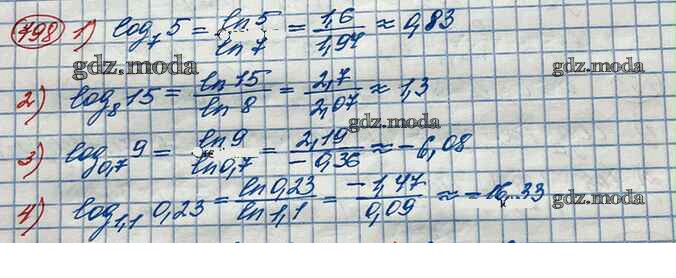 798 1) log₇ 5 = ln 5 / ln 7 = 1,6 / 1,94 ≈ 0,83
gdz.moda gdz.moda
2) log₈ 15 = ln 15 / ln 8 = 2,7 / 2,07 ≈ 1,3
gdz.moda
3) log₀,₇ 9 = ln 9 / ln 0,7 = 2,19 / -0,36 ≈ -6,08
4) log₁,₁ 0,23 = ln 0,23 / ln 1,1 = -1,47 / 0,09 ≈ -16,33
gdz.moda gdz.moda